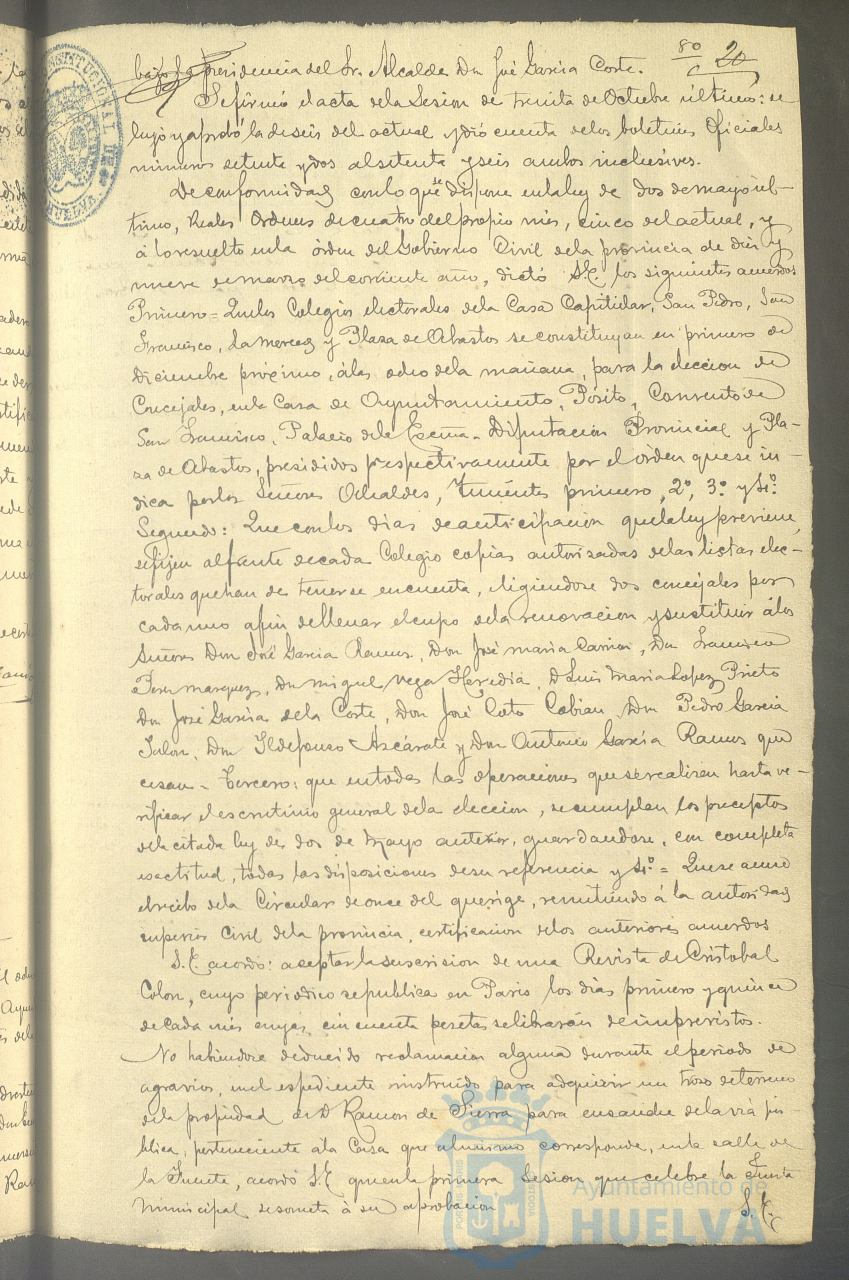 80 20
bajo la presidencia del Sr. Alcalde Don José García Corte.
Se firmó el acta dela Sesion de treinta de Octubre último: se
leyó y aprobó la de seis del actual y dió cuenta delos boletines Oficiales
números setenta y dos al setenta y seis ambos inclusives.
De conformidad con lo que se dispone enla ley de dos de mayo úl-
timo, Reales Ordenes de cuatro del propio mes, cinco del actual, y
á lo resuelto enla órden del Gobierno Civil dela provincia de diez y
nueve de marzo del corriente año, dictó S.E. los siguientes acuerdos
Primero = Quelos Colegios electorales dela Casa Capitular, San Pedro, San
Francisco, La Merced y Plaza de Abastos se constituyan en primero de
Diciembre próximo, álas ocho dela mañana, para la eleccion de
Concejales, enla Casa de Ayuntamiento, Pósito, Convento de
San Francisco, Palacio dela Excma. Diputacion Provincial y Pla-
za de Abastos, presididos respectivamente por el órden que se in-
dica por los Señores Alcaldes, Tenientes primero, 2º, 3º y 4º.
Segundo: Que con los dias de anticipacion quela ley previene,
se fijen al frente de cada Colegio copias autorizadas delas listas elec-
torales que han de tenerse en cuenta, eligiendose dos concejales por
cada uno afin de llenar el cupo dela renovacion y sustituir álos
Señores Don José García Ramos, Don José María Carrion, Don Francisco
Perez Marquez, Don Miguel Vega Heredia, D Luis María Lopez Prieto
Don José García dela Corte, Don José Coto Cobian, Don Pedro García
Jalon, Don Ildefonso Azcárate y Don Antonio García Ramos que
cesan - Tercero: que entodas las operaciones que se realicen hasta ve-
rificar el escrutinio general dela eleccion, se cumplan los preceptos
dela citada ley de dos de Mayo anterior, guardandose, con completa
exactitud, todas las disposiciones de su referencia y 4º = Que se acuse
el recibo dela Circular de once del que rige, remitiendo á la autoridad
superior Civil dela provincia, certificacion delos anteriores acuerdos
S.E. acordó: aceptar la suscrision de una Revista de Cristobal
Colon, cuyo periodico se publica en Paris los dias primero y quince
de cada mes cuyas cincuenta pesetas se librarán de imprevistos.
No habiendose deducido reclamacion alguna durante el periodo de
agravios, enel espediente instruido para adquirir un trozo de terreno
dela propiedad de D Ramon de Sierra para ensanche dela vía pú-
blica, perteneciente ála Casa que al mismo corresponde, enla calle de
la Fuente, acordó S.E. que enla primera Sesion que celebre la Junta
Municipal se someta á su aprobacion
S.E.
Ayuntamiento de
HUELVA